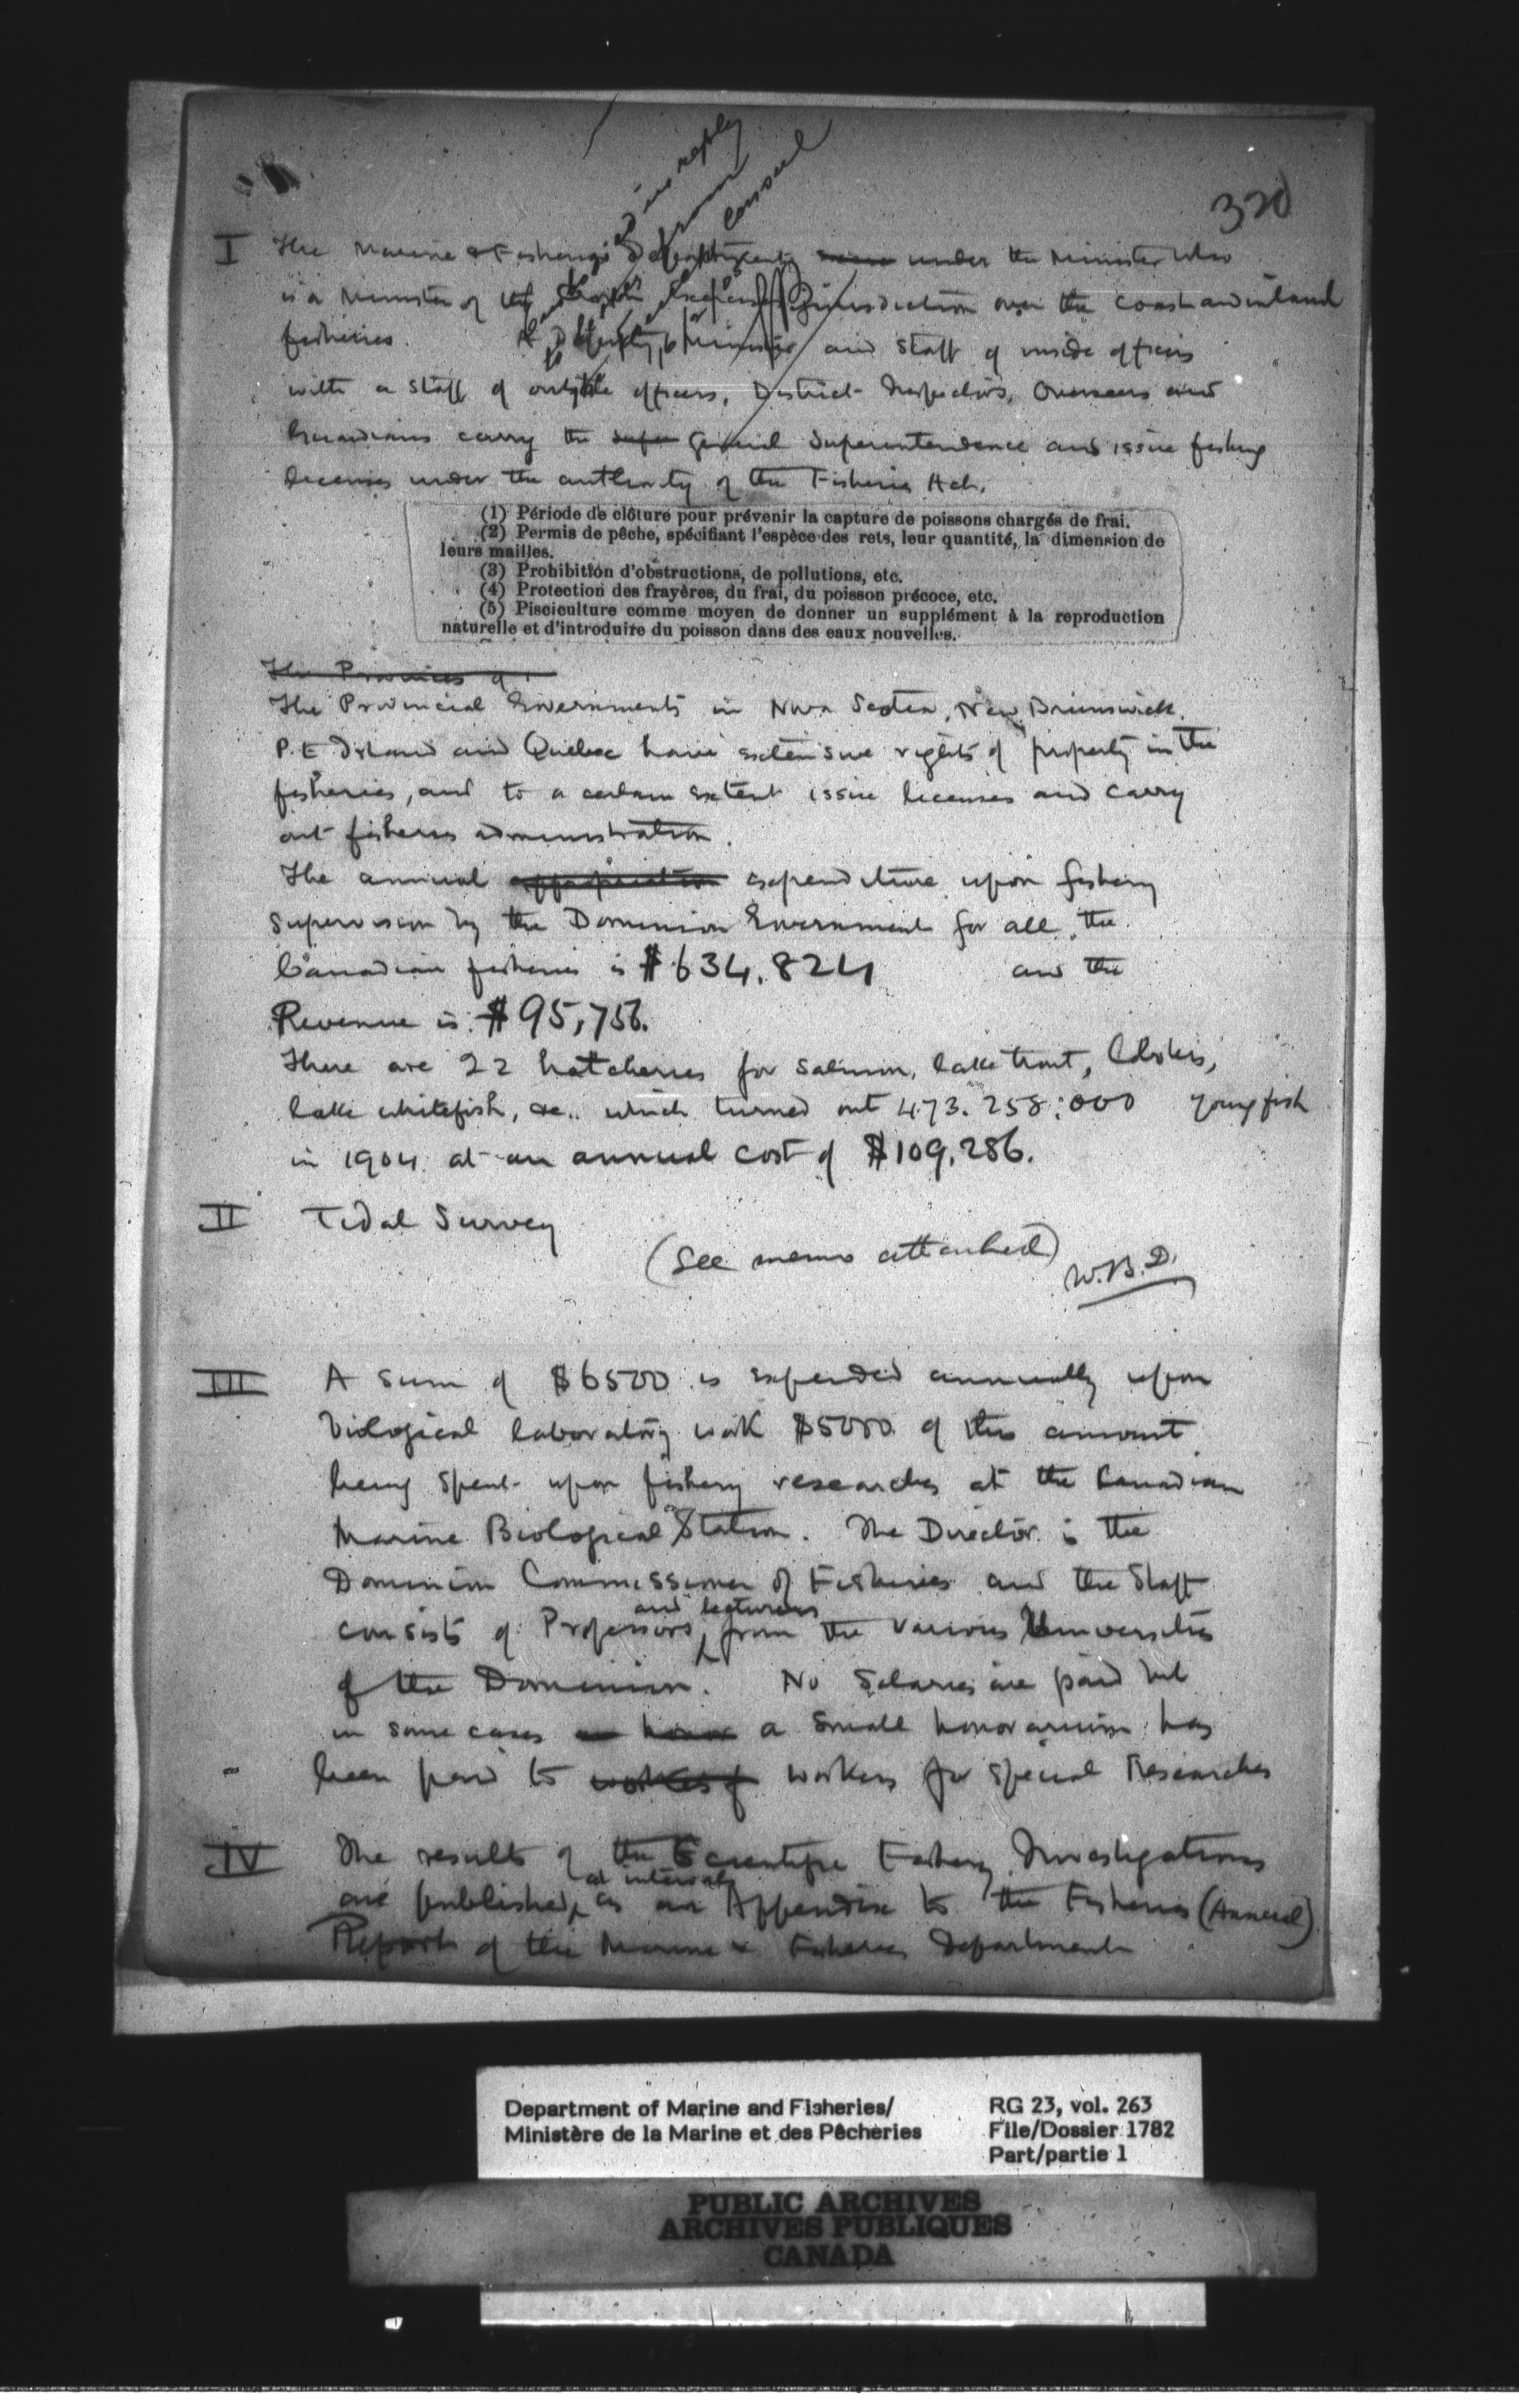 320
I The Marine & Fisheries Department under the Minister who
is a Minister of the jurisdiction over the coast and inland
fisheries. A Deputy Minister and staff of inside officers
with a staff of outside officers, District Inspectors, Overseers and
Guardians carry the super general superintendence and issue fishing
licenses under the authority of the Fisheries Act.
(1) Période de clôture pour prévenir la capture de poissons chargés de frai.
(2) Permis de pêche, spécifiant l'espèce des rets, leur quantité, la dimension de
leurs mailles.
(3) Prohibition d'obstructions, de pollutions, etc.
(4) Protection des frayères, du frai, du poisson précoce, etc.
(5) Pisciculture comme moyen de donner un supplément à la reproduction
naturelle et d'introduire du poisson dans des eaux nouvelles.
The Provinces of
The Provincial Governments in Nova Scotia, New Brunswick,
P.E Island and Quebec have extensive rights of property in the
fisheries, and to a certain extent issue licenses and carry
out fisheries administration.
The annual appropriation expenditure upon fishery
supervision by the Dominion Government for all the
Canadian fisheries is $634.824 and the
Revenue is $95,756.
There are 22 hatcheries for salmon, lake trout, lobsters,
lake whitefish, &c.. which turned out 473.258.000 young fish
in 1904 at an annual cost of $109,286.
II Tidal Survey
(See memo attached)
W.B.D.
III A sum of $6500 is expended annually upon
biological laboratory work $5000 of this amount
being spent upon fishery researches at the Canadian
Marine Biological Station. The Director is the
Dominion Commissioner of Fisheries and the Staff
consists of Professors and lecturers from the various Universities
of the Dominion. No Salaries are paid but
in some cases a small honorarium has
been paid to workers workers for special Researches
IV The results of the Scientific Fishery Investigations
are published at intervals as an Appendix to the Fisheries (Annual)
Report of the Marine & Fisheries Department
Department of Marine and Fisheries/
Ministère de la Marine et des Pêcheries
RG 23, vol. 263
File/Dossier 1782
Part/partie 1
PUBLIC ARCHIVES
ARCHIVES PUBLIQUES
CANADA